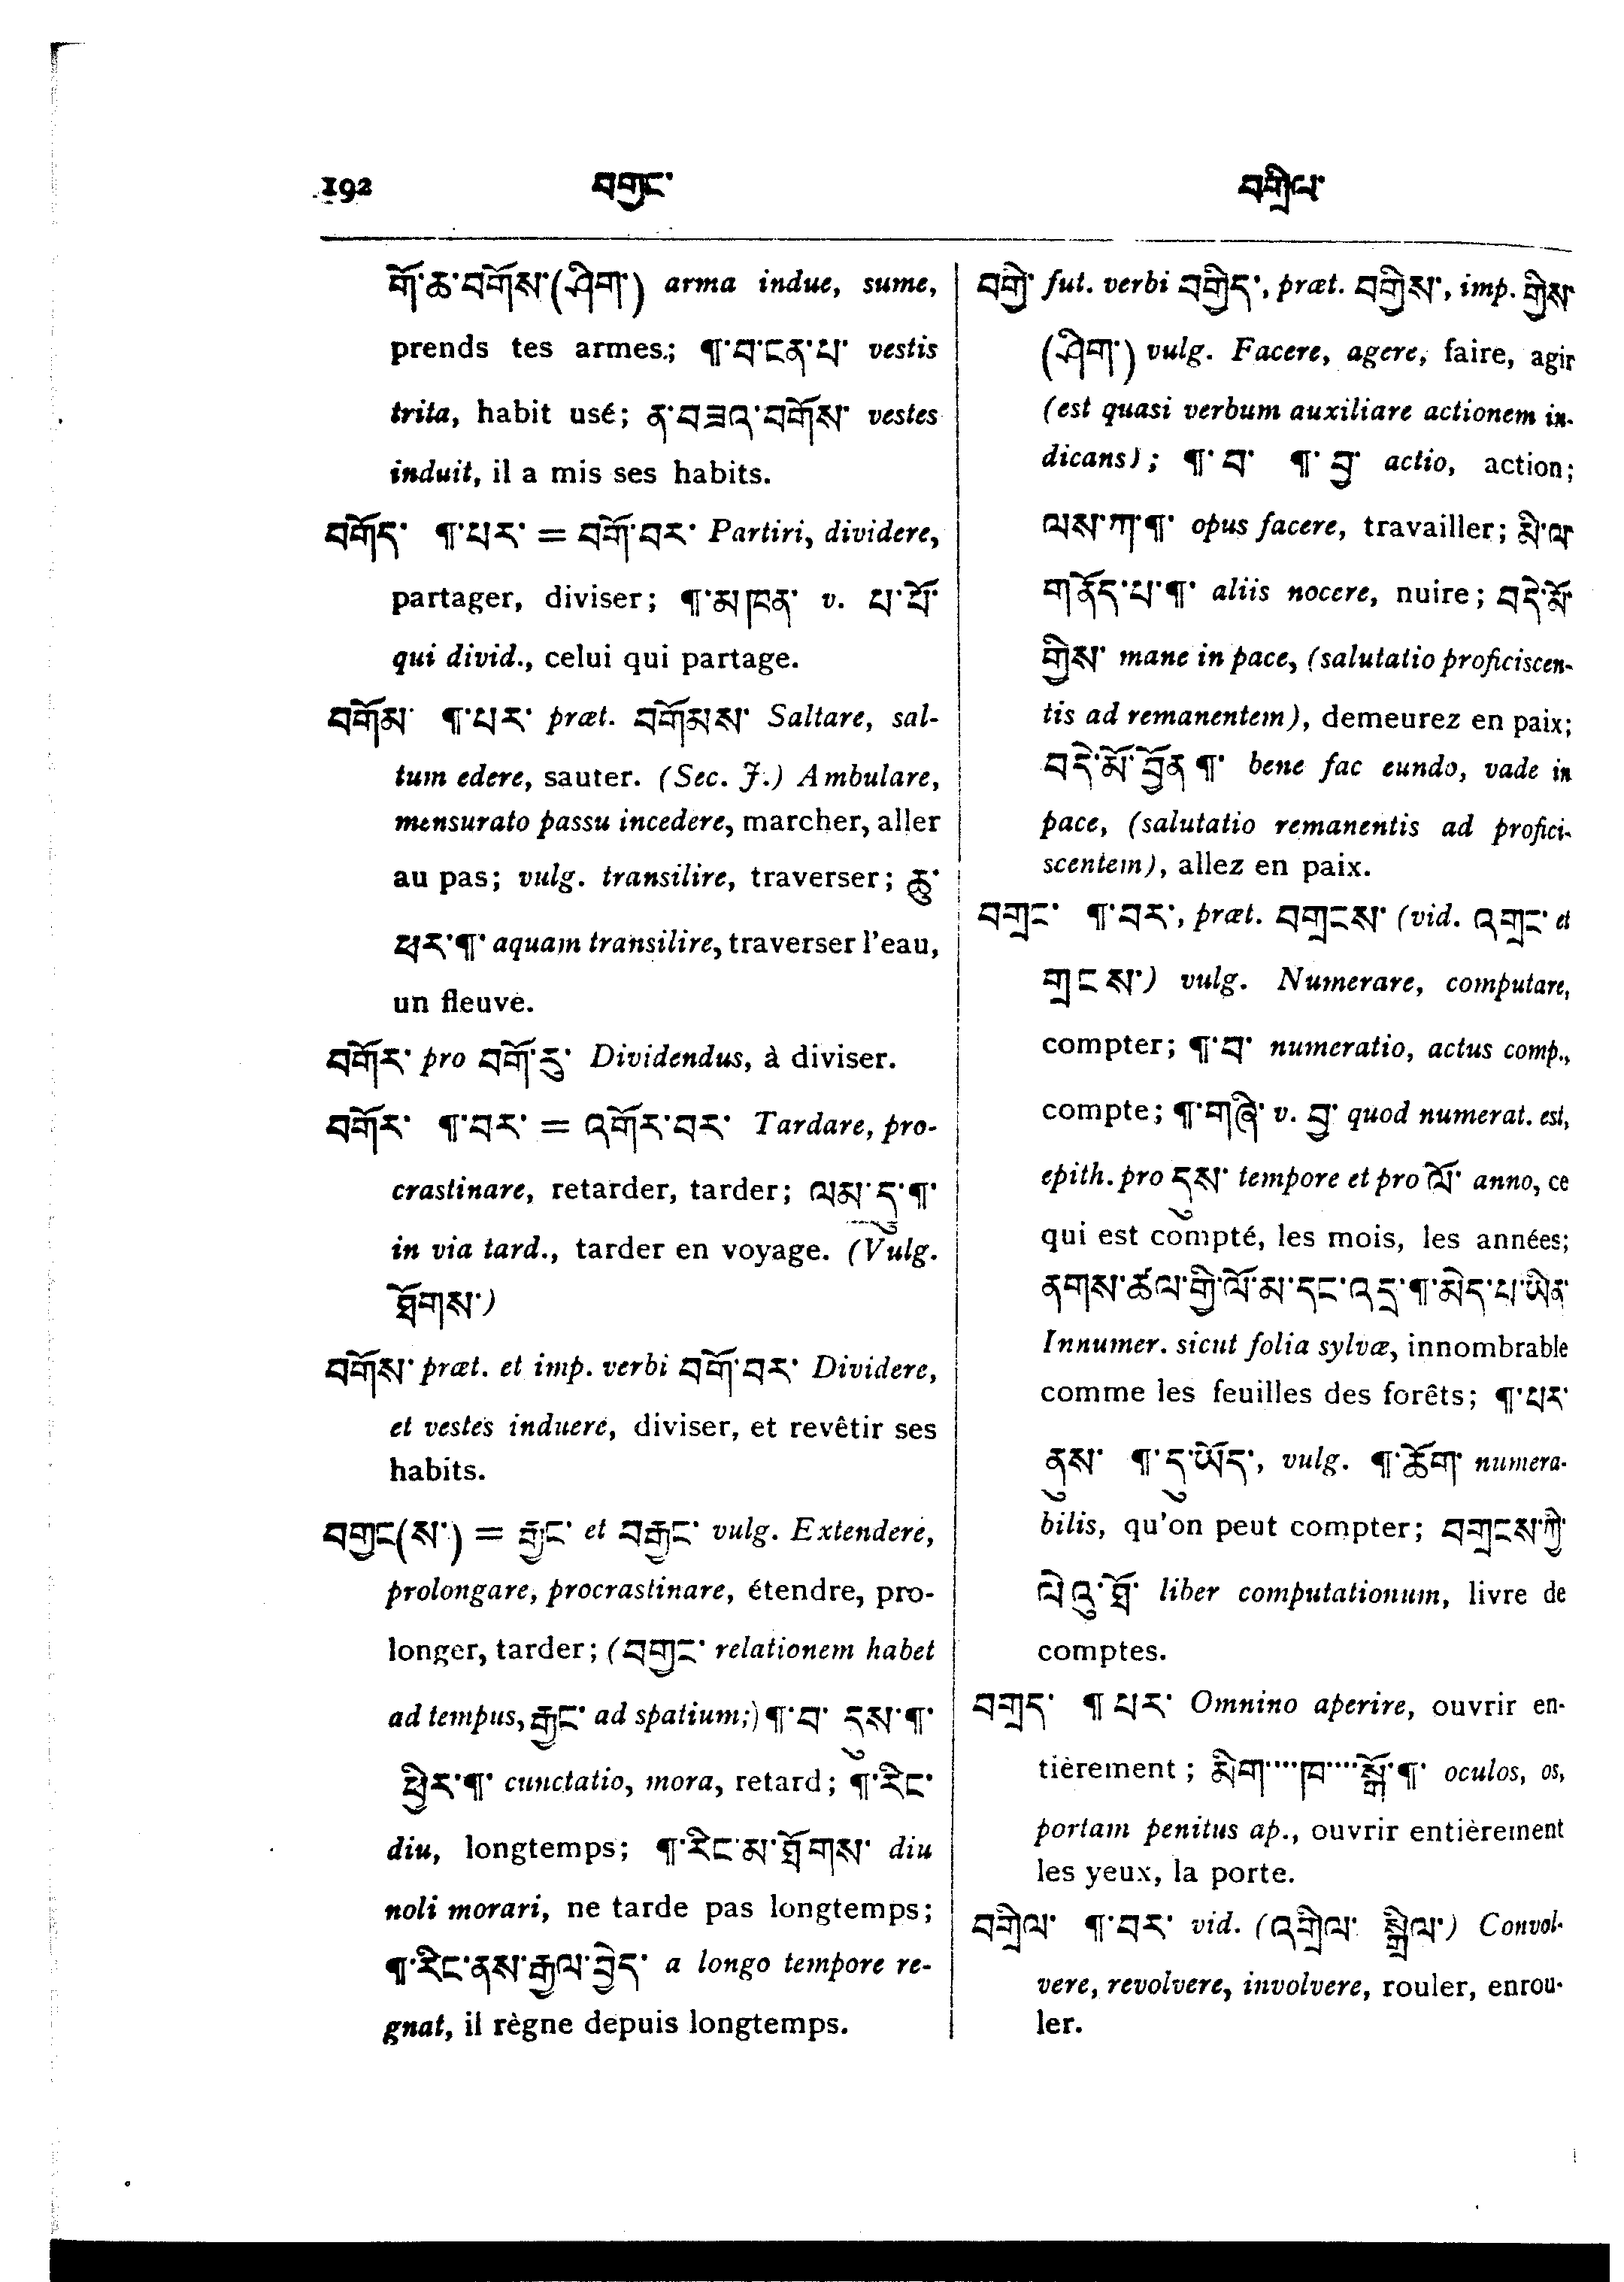 192 བགྱང་ བགྲིལ་
གོ་ཆ་བགོས་(ཤིག་) arma indue, sume,
prends tes armes; ¶་བ་ངན་པ་ vestis
trita, habit usé; ན་བཟའ་བགོས་ vestes
induit, il a mis ses habits.
བགོད་ ¶་པར་ = བགོ་བར་ Partiri, dividere,
partager, diviser; ¶་མཁན་ v. པ་པོ་
qui divid., celui qui partage.
བགོམ་ ¶་པར་ præt. བགོམས་ Saltare, sal-
tum edere, sauter. (Sec. J.) Ambulare,
mensurato passu incedere, marcher, aller
au pas; vulg. transilire, traverser; ཆུ་
ཕར་¶་ aquam transilire, traverser l'eau,
un fleuve.
བགོར་ pro བགོ་རུ་ Dividendus, à diviser.
བགོར་ ¶་བར་ = འགོར་བར་ Tardare, pro-
crastinare, retarder, tarder; ལམ་དུ་¶་
in via tard., tarder en voyage. (Vulg.
ཐོགས་)
བགོས་ præt. et imp. verbi བགོ་བར་ Dividere,
et vestes induere, diviser, et revêtir ses
habits.
བགྱང(ས་) = རྒྱང་ et བརྒྱང་ vulg. Extendere,
prolongare, procrastinare, étendre, pro-
longer, tarder; (བགྱང་ relationem habet
ad tempus, རྒྱང་ ad spatium;) ¶་བ་ དུས་¶་
ཕྱིར་¶་ cunctatio, mora, retard; ¶་རིང་
diu, longtemps; ¶་རིང་མ་ཐོགས་ diu
noli morari, ne tarde pas longtemps;
¶་རིང་ནས་རྒྱལ་བྱེད་ a longo tempore re-
gnat, il règne depuis longtemps.
བགྱི་ fut. verbi བགྱིད་, præt. བགྱིས་, imp. གྱིས་
(ཤིག་) vulg. Facere, agere, faire, agir
(est quasi verbum auxiliare actionem in-
dicans); ¶་བ་ ¶་བྱ་ actio, action;
ལས་ཀ་¶་ opus facere, travailler; མི་ལ་
གནོད་པ་¶་ aliis nocere, nuire; བདེ་མོ་
གྱིས་ mane in pace, (salutatio proficiscen-
tis ad remanentem), demeurez en paix;
བདེ་མོ་བྱོན¶་ bene fac eundo, vade in
pace, (salutatio remanentis ad profici-
scentem), allez en paix.
བགྲང་ ¶་བར་, præt. བགྲངས་ (vid. འགྲང་ et
གྲངས་) vulg. Numerare, computare,
compter; ¶་བ་ numeratio, actus comp.,
compte; ¶་གཞི་ v. བྱ་ quod numerat. est,
epith. pro དུས་ tempore et pro ལོ་ anno, ce
qui est compté, les mois, les années;
ནགས་ཚལ་གྱི་ལོ་མ་དང་འདྲ་¶་མེད་པ་ཡིན་
Innumer. sicut folia sylvæ, innombrable
comme les feuilles des forêts; ¶་པར་
ནུས་ ¶་དུ་ཡོད་, vulg. ¶་ཆོག་ numera-
bilis, qu'on peut compter; བགྲངས་ཀྱི་
ལེའུ་ཐོ་ liber computationum, livre de
comptes.
བགྲད་ ¶ པར་ Omnino aperire, ouvrir en-
tièrement; མིག་····ཁ་····སྒོ་¶་ oculos, os,
portam penitus ap., ouvrir entièrement
les yeux, la porte.
བགྲིལ་ ¶་བར་ vid. (འགྲིལ་ སྒྲིལ་) Convol-
vere, revolvere, involvere, rouler, enrou-
ler.